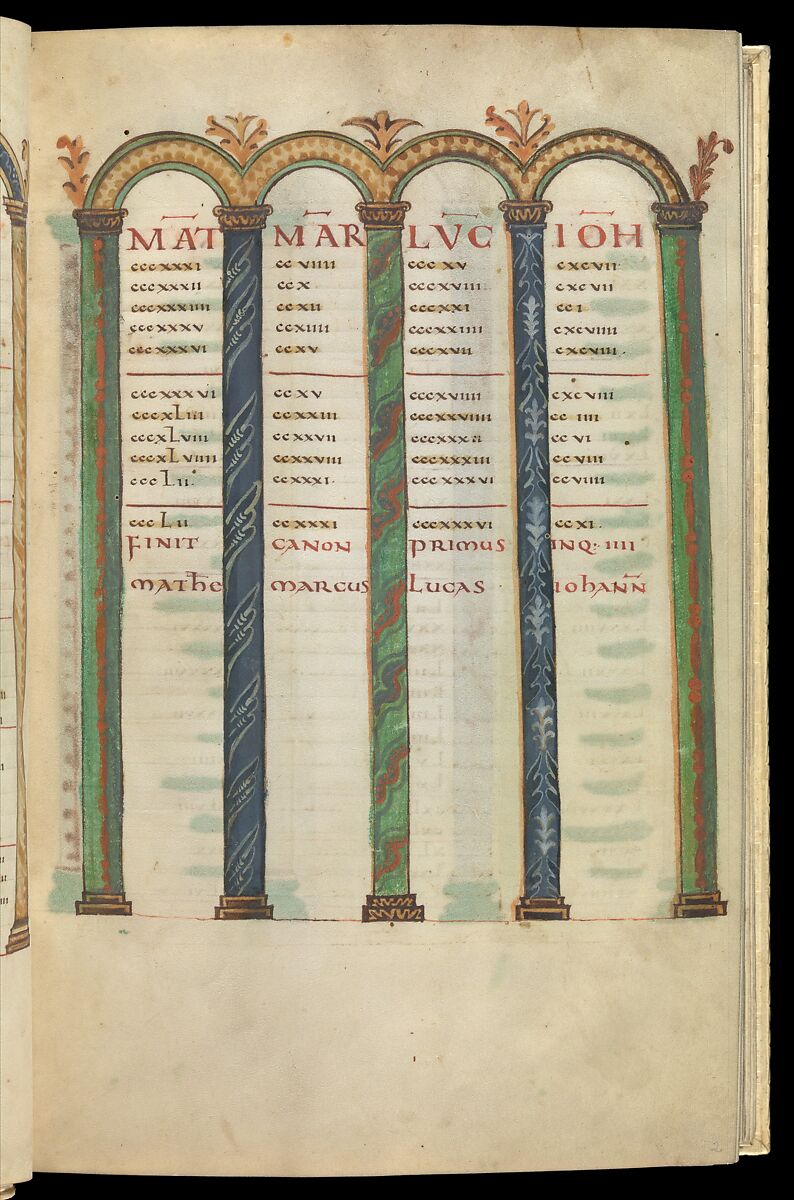 MAT MAR LVC IOH
cccxxxi cc viiii ccc xv cxcvii
cccxxxii cc x cccxviii cxcvii
cccxxxiiii cc xii cccxxi cc i
cccxxxv ccxiiii cccxxiiii cxcviiii
cccxxxvi cc xv cccxxvii cxcviii
cccxxxvi cc xv cccxviiii cxcviii
cccxLiii ccxxiii cccxxviiii cc iiii
cccxLviii ccxxvii cccxxxii cc vi
cccxLviiii ccxxviii cccxxxiii cc viii
cccLii ccxxxi cccxxxvi cc viiii
cccLii ccxxxi cccxxxvi ccxi
FINIT CANON PRIMUS INQ: IIII
MATHE MARCUS LUCAS IOHANN